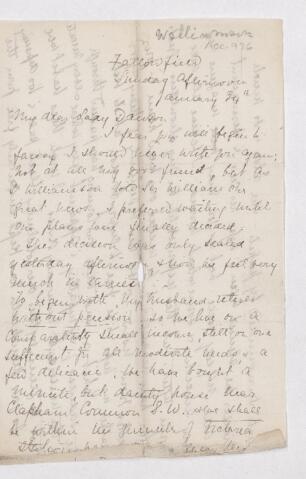 Fallowfield
Sunday Afternoon
January
My dear Lady Dawson
I fear you will begin to
fancy I should never write you again;
not at all my good friend, but as
Williamson told Sir William our
great news, I preferred waiting until
our plans were finally decided.
The decision was only sealed
yesterday afternoon, & now we feel very
much in earnest.
To begin with, my husband retires
without pension so we live on a
comparatively small income, still for our
sufficient for all moderate needs & a
few delicacies. We have bought a
minute but dainty house near
Clapham Common S.W. &
be within minutes of Victoria